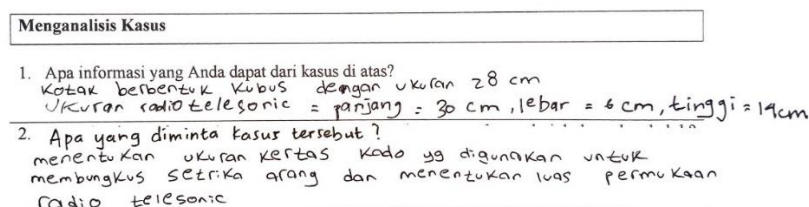 Menganalisis Kasus
1. Apa informasi yang Anda dapat dari kasus di atas?
Kotak berbentuk Kubus dengan ukuran 28 cm
Ukuran radio telesonic = panjang = 30 cm, lebar = 6 cm, tinggi = 19cm
2. Apa yang diminta kasus tersebut?
menentukan ukuran kertas kado yg digunakan untuk
membungkus setrika arang dan menentukan luas permukaan
radio telesonic